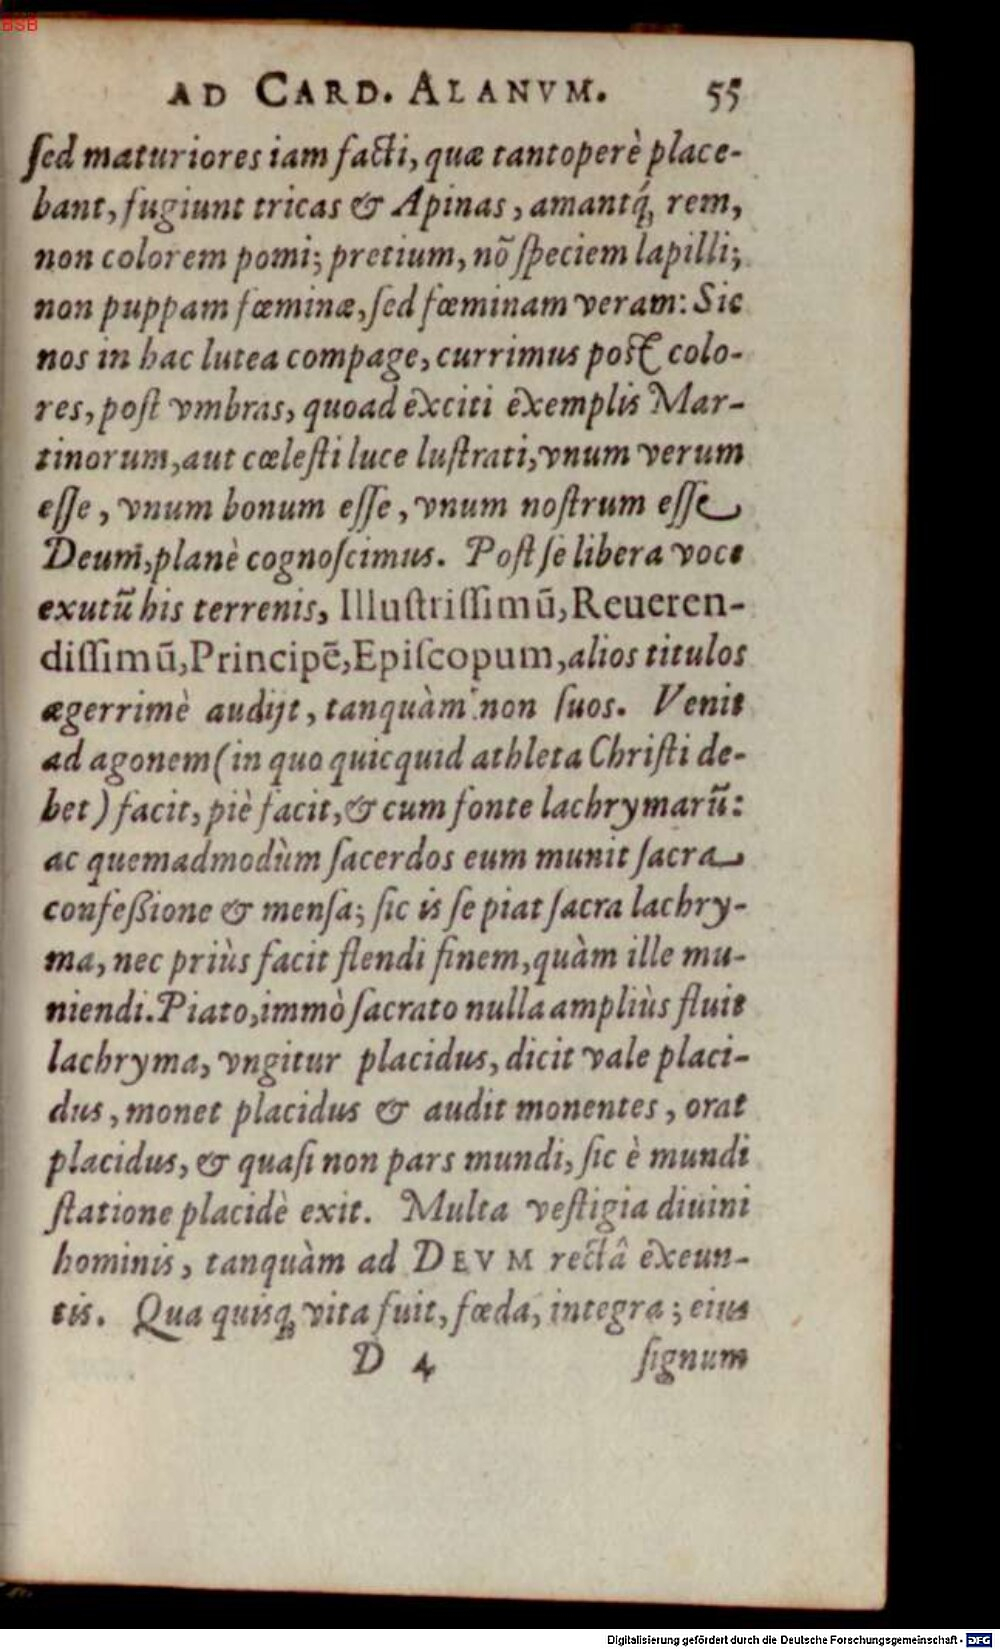 BSB
AD CARD. ALANVM. 55
ſed maturiores iam facti, quæ tantoperè place-
bant, fugiunt tricas & Apinas, amantq́; rem,
non colorem pomi; pretium, nõ ſpeciem lapilli;
non puppam fœminæ, ſed fœminam veram: Sic
nos in hac lutea compage, currimus poſt colo-
res, poſt vmbras, quoad exciti exemplis Mar-
tinorum, aut cœleſti luce luſtrati, vnum verum
eſſe, vnum bonum eſſe, vnum noſtrum eſſe
Deum, planè cognoſcimus. Poſt ſe libera voce
exutũ his terrenis, Illuſtriſſimũ, Reueren-
diſſimũ, Principẽ, Epiſcopum, alios titulos
ægerrimè audijt, tanquàm non ſuos. Venit
ad agonem (in quo quicquid athleta Chriſti de-
bet) facit, piè facit, & cum fonte lachrymarũ:
ac quemadmodùm ſacerdos eum munit ſacra
confeßione & menſa; ſic is ſe piat ſacra lachry-
ma, nec priùs facit flendi finem, quàm ille mu-
niendi. Piato, immò ſacrato nulla ampliùs fluit
lachryma, vngitur placidus, dicit vale placi-
dus, monet placidus & audit monentes, orat
placidus, & quaſi non pars mundi, ſic è mundi
ſtatione placidè exit. Multa veſtigia diuini
hominis, tanquàm ad DEVM rectâ exeun-
tis. Qua quisq; vita fuit, fœda, integra; eius
D 4 ſignum
Digitalisierung gefördert durch die Deutsche Forschungsgemeinschaft - DFG